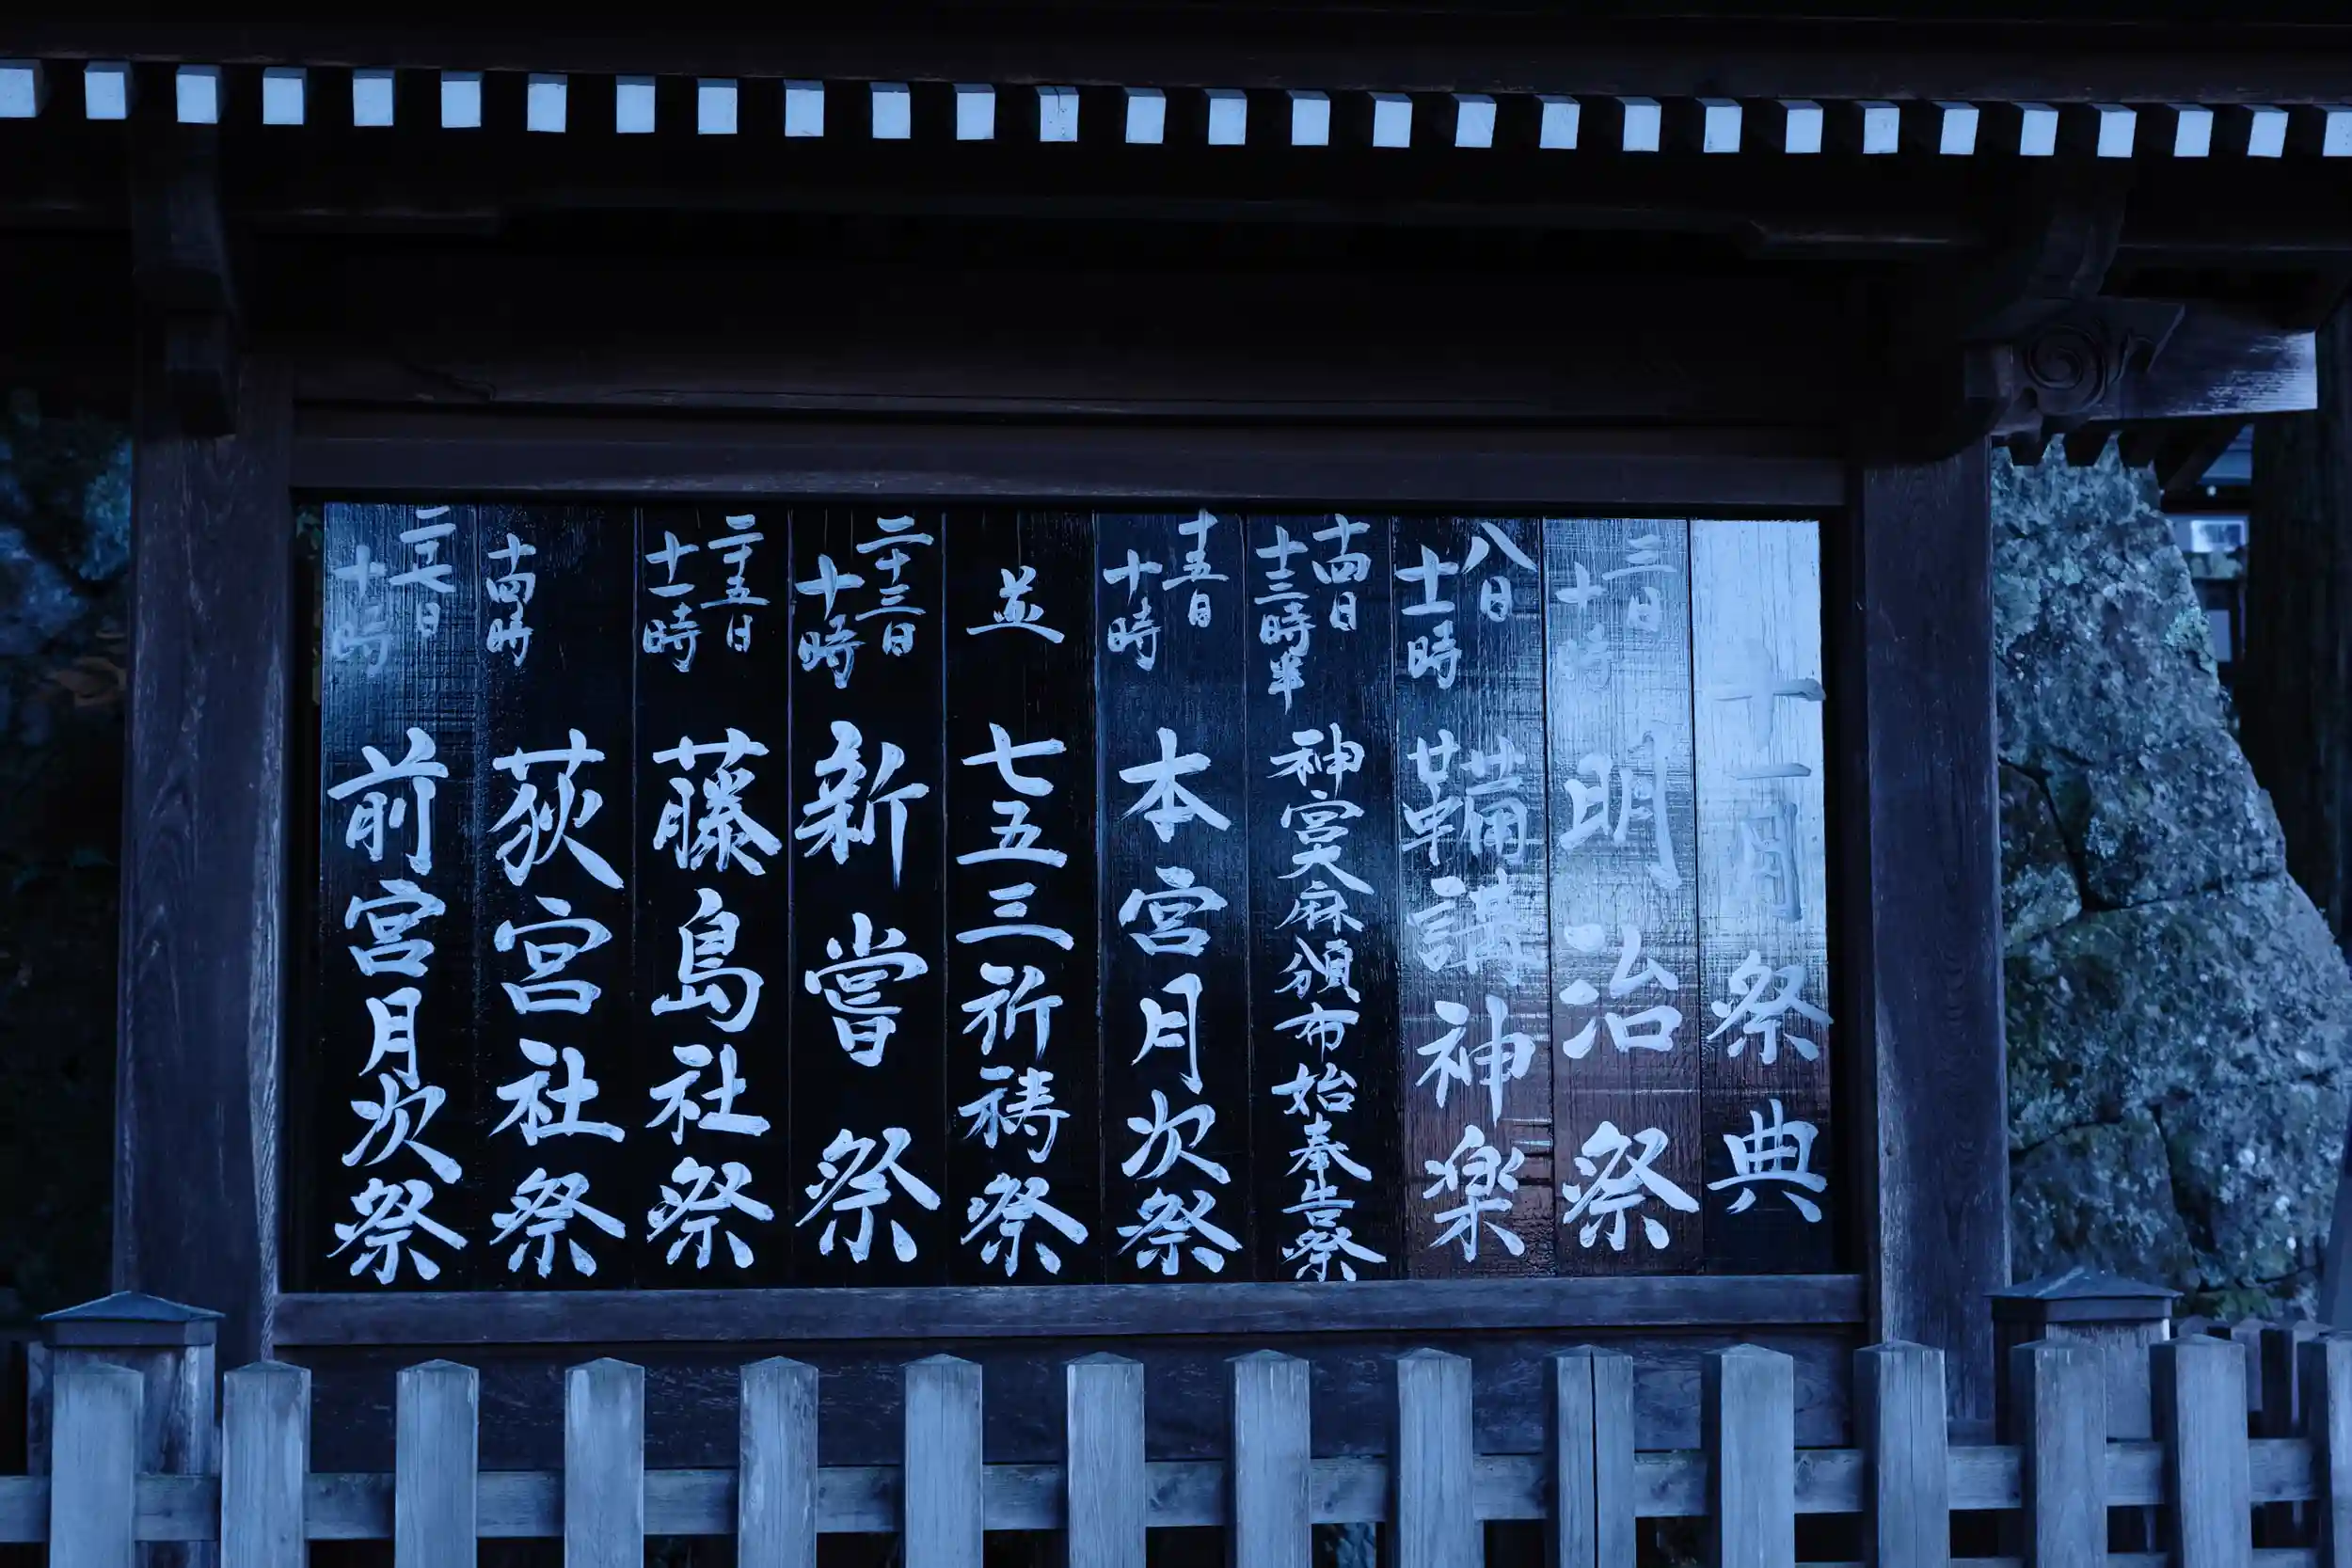 十一月祭典
三日
十時
明治祭
八日
十一時
鞴講神楽
十四日
十三時半
神宮大麻頒布始奉告祭
十五日
十時
本宮月次祭
並
七五三祈祷祭
二十三日
十時
新嘗祭
二十五日
十一時
藤島社祭
十四時
荻宮社祭
二十七日
十時
前宮月次祭